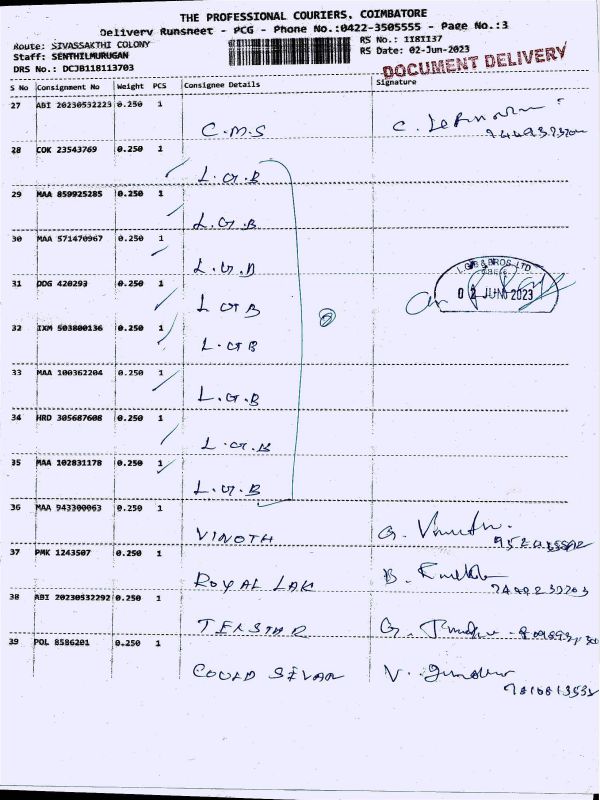 THE PROFESSIONAL COURIERS, COIMBATORE
Delivery Runsheet - PCG - Phone No.:0422-3505555 - Page No.:3
Route: SIVASSAKTHI COLONY RS No.: 118I137
Staff: SENTHILMURUGAN RS Date: 02-Jun-2023
DRS No.: DCJB118113703 DOCUMENT DELIVERY
S No Consignment No Weight PCS Consignee Details Signature
27 ABI 20230532223 0.250 1
C.M.S C.
28 COK 23543769 0.250 1
L.G.B
29 MAA 859925285 0.250 1
L.G.B
30 MAA 571470967 0.250 1
L.G.B
L.G.B & BROS LTD
31 DDG 420293 0.250 1
02 JUN 2023
L G B
32 IXM 503800136 0.250 1
L.G B
33 MAA 100362204 0.250 1
L.G.B
34 HRD 305687608 0.250 1
L.G.B
35 MAA 102831178 0.250 1
L.G.B
36 MAA 943300063 0.250 1
VINOTH G.
37 PMK 1243507 0.250 1
ROYAL LAK B.
38 ABI 20230532292 0.250 1
TEKSTAR G.
39 POL 8586201 0.250 1
COULD SEVAN V.